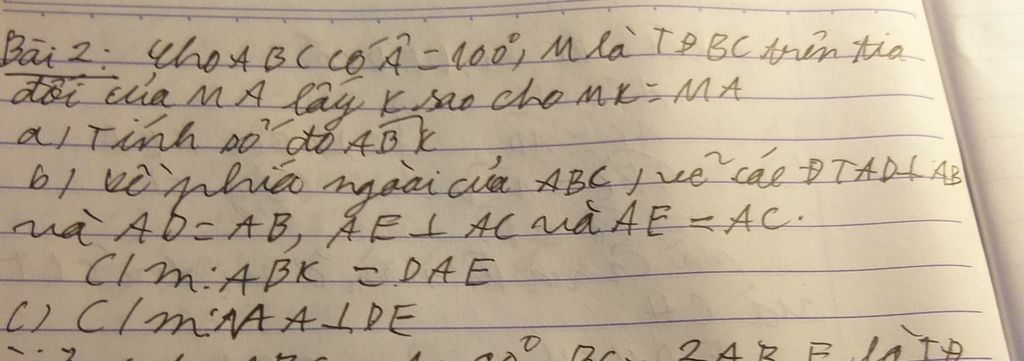 Bài 2: Cho ABC có Â = 100°, M là TĐ BC trên tia
đối của MA lấy K sao cho MK = MA
a) Tính số đo ABK
b) Về phía ngoài của ABC, vẽ các ĐT AD ⊥ AB
và AD = AB, AE ⊥ AC và AE = AC.
C/m: ABK = DAE
c) C/m: MA ⊥ DE
BC = 2AB E là TĐ